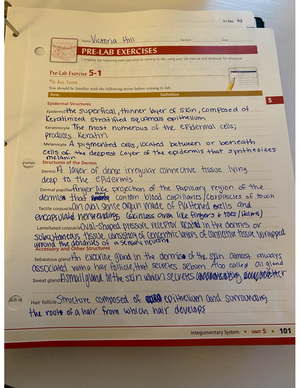 Name Victoria Hill Section Date
PRE-LAB EXERCISES
Complete the following exercises prior to coming to lab, using your lab manual and textbook for reference.
Pre-Lab Exercise 5-1
Key Terms
You should be familiar with the following terms before coming to lab.
Term Definition
Epidermal Structures
Epidermis the superficial, thinner layer of skin, composed of
Keratinized stratified squamous epithelium
Keratinocyte The most numerous of the epidermal cells;
produces keratin
Melanocyte A pigmented cells, located between or beneath
cells of the deepest layer of the epidermis that synthesizes
melanin
Structures of the Dermis
Dermis A layer of dense irregular connective tissue lying
deep to the epidermis
Dermal papillae finger like projection of the papillary region of the
dermis that contain blood capillaries/corpuscles of touch
Tactile corpuscle An oval sense organ made of flattened cells and
encapsulated nerve endings (hairless area like fingers & toes)
Lamellated corpuscle Oval-shaped pressure receptor located in the dermis or
subcutaneous tissue consisting of concentric layers of connective tissue wrapped
around the dendrites of a sensory neuron
Accessory and Other Structures
Sebaceous gland An exocrine gland in the dermis of the skin almost always
associated with hair follicle, that secretes sebum. Also called oil gland
Sweat gland A small gland in the skin which secretes
Hair follicle Structure composed of epithelium and surrounding
the root of a hair from which hair develops
Integumentary System UNIT 5 101
5